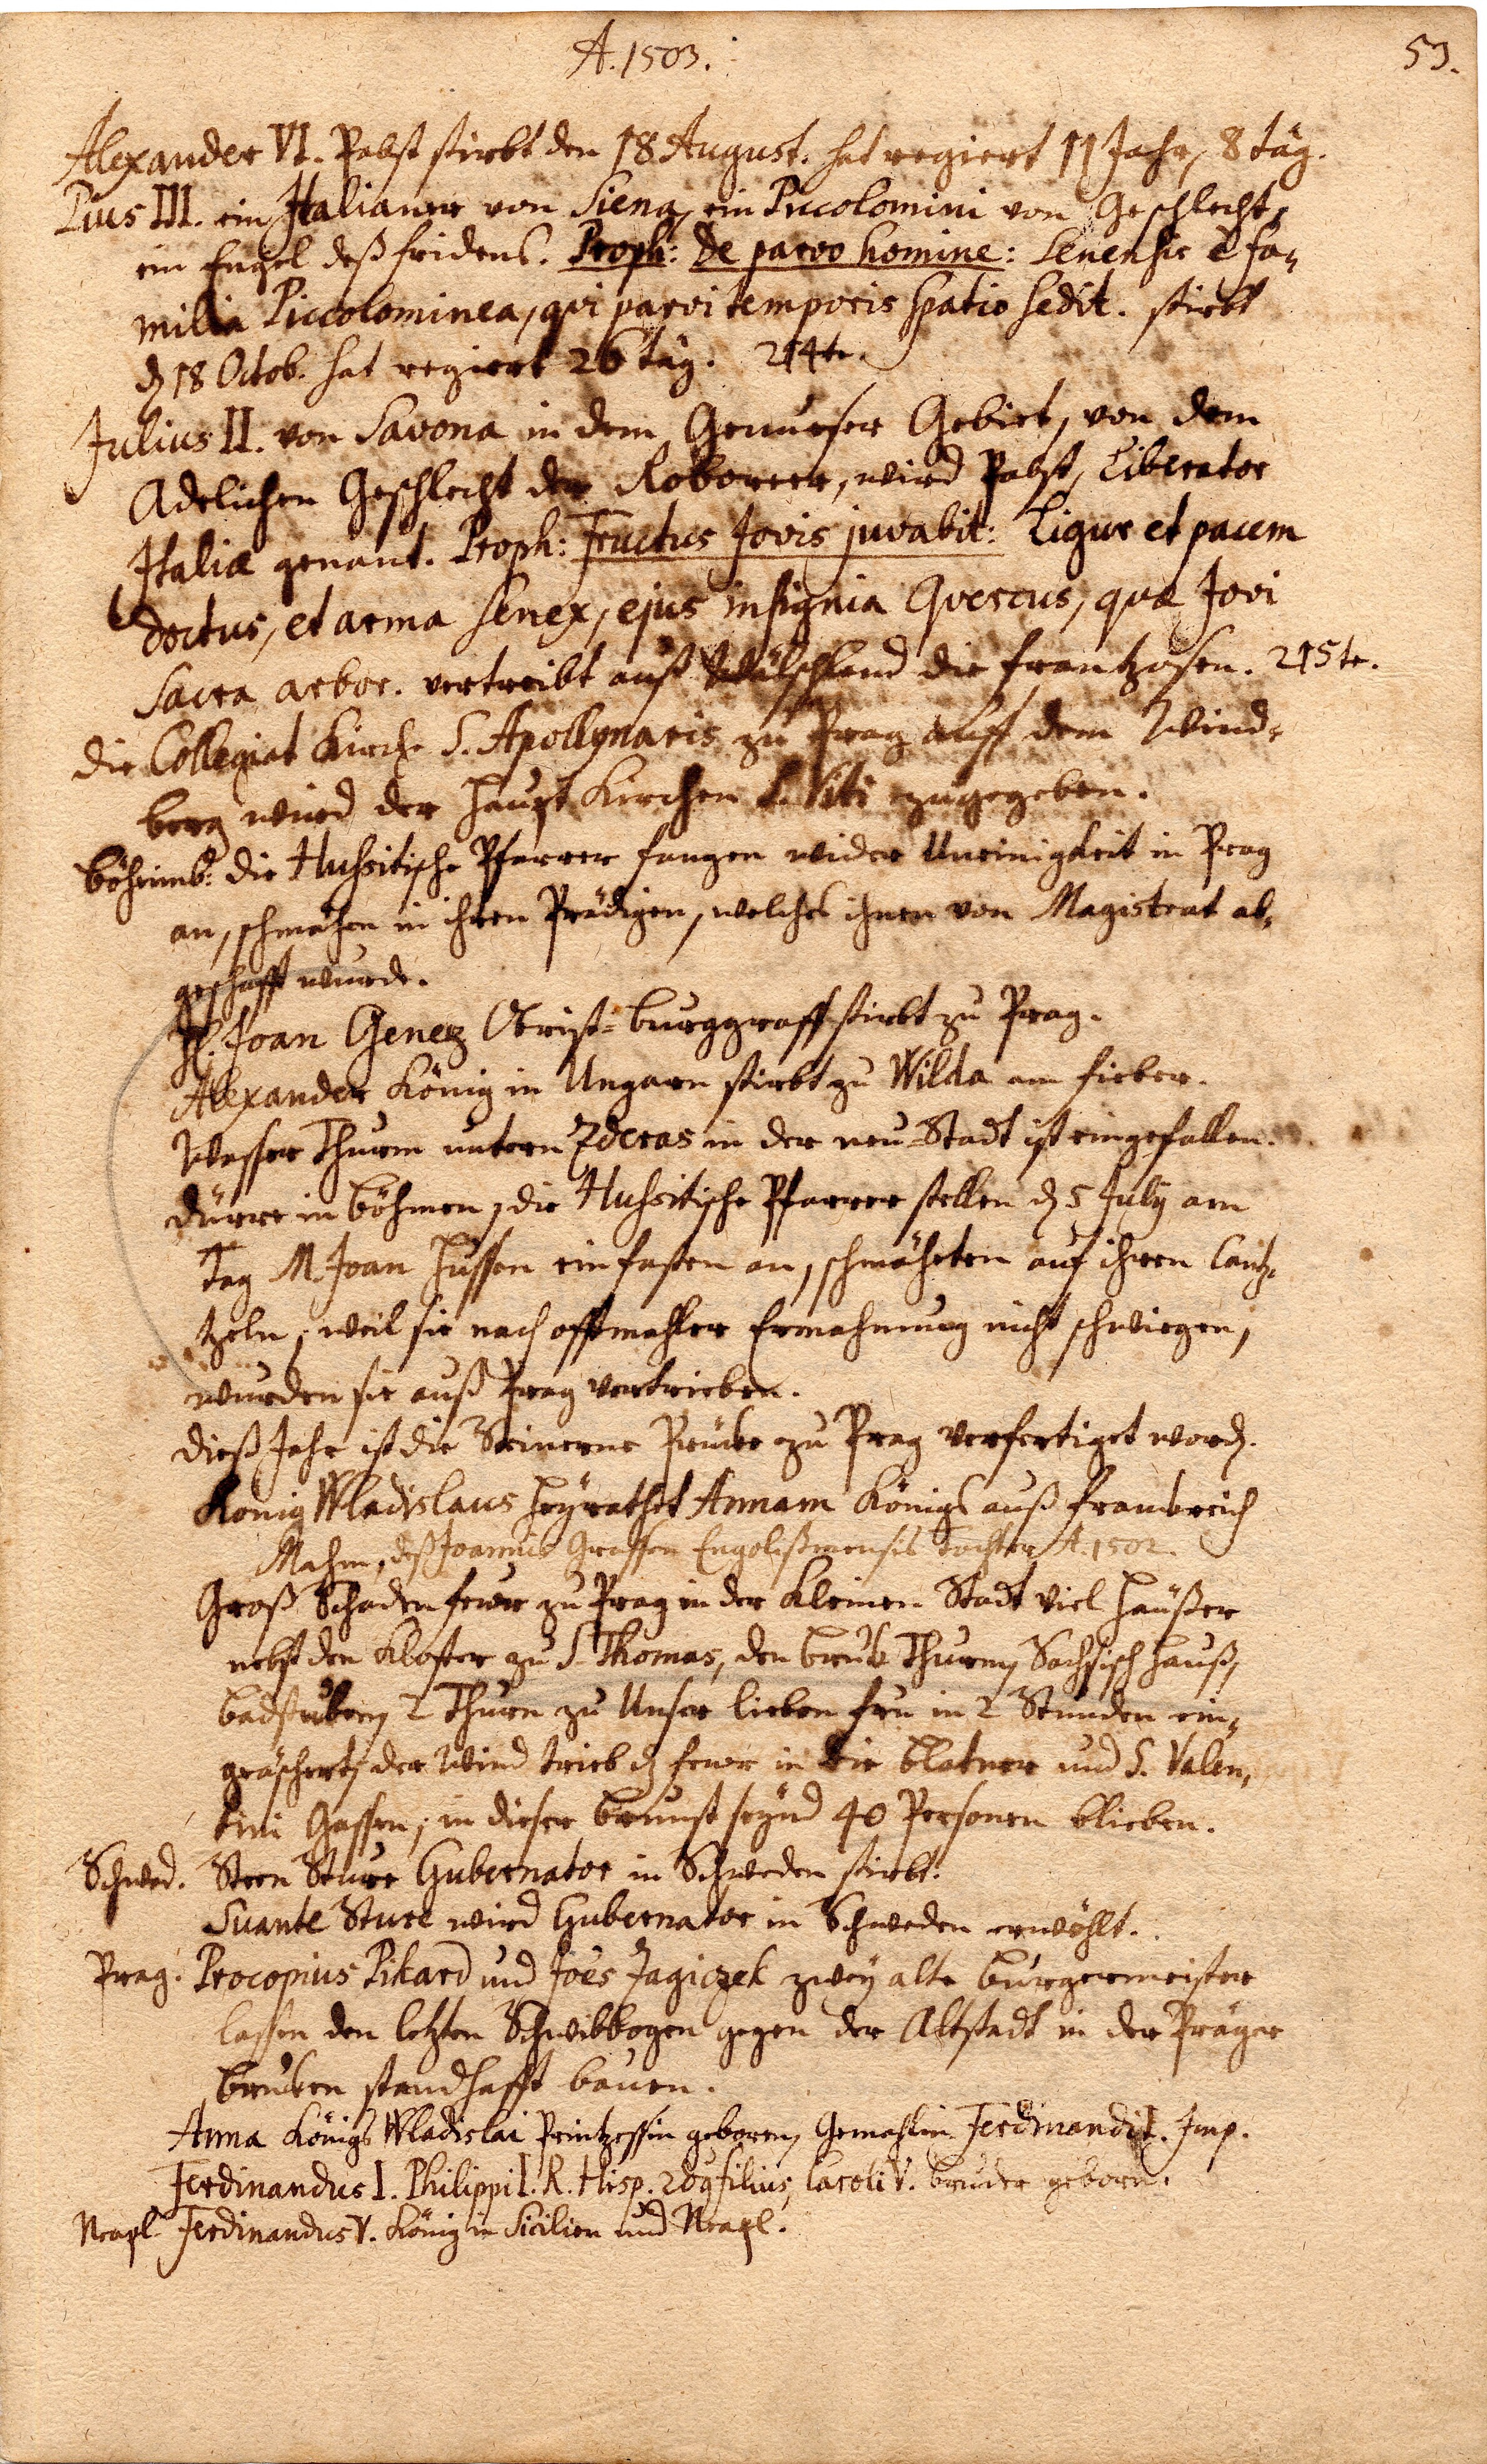 A. 1503.
53.
Alexander VI. Pabst stirbt den 18 August. hat regiert 11 Jahr, 8 täg.
Pius III. ein Italianer von Siena, ein Piccolomini von Geschlecht,
ein Engel deß fridens. Proph: De parvo homine: Senensis è fa-
milia Piccolominea, qvi parvi temporis spatio sedit. stirbt
d. 18 Octob. hat regiert 26 täg. 214te.
Julius II. von Savona in dem Genueser Gebiet, von dem
Adelichen Geschlecht der Roboreer, wird Pabst, Liberator
Italiæ genant. Proph: Fructus Jovis juvabit: Ligur et pacem
doctus, et arma senex, ejus insignia Qvercus, quæ Jovi
Sacra arbor. vertreibt auß Wälschland die frantzosen. 215te.
die Collegiat Kirche S. Apollynaris zu Prag auff dem Wind-
berg wird der Haupt Kirchen S. Viti zugegeben.
Böheimb: die Hussitische Pfarrer fangen wider Uneinigkeit in Prag
an, schmähen in ihren Prädigen, welches ihnen von Magistrat ab-
geschafft wurde.
H. Joan Genez Obrist-burggraff stirbt zu Prag.
Alexander König in Ungarn stirbt zu Wilda am fieber.
Wasser Thurm untern Zderas in der neu-Stadt ist eingefallen.
dürre in böhmen, die Hussitische Pfarrer stellen d. 5 July am
Tag M. Joan Hussen ein fasten an, schmähten auf ihren Cantz-
tzeln, weil sie nach offtmahler Ermahnung nicht schwiegen,
wurden sie auß Prag vertrieben.
dieß Jahr ist die Steinerne Prücke zu Prag verfertiget word.
König Wladislaus heyrathet Annam Königs auß franckreich
Mahm, deß Joannis Graffen Engolißmensis Tochter A. 1502.
Groß Schaden feuer zu Prag in der Kleinen Stadt viel Häußer
nebst den Kloster zu S. Thomas, den bruck Thurm, Sachsisch Hauß,
badstuben, 2 Thurn zu Unser lieben fru in 2 Stunden ein-
geäschert, der Wind trieb d. feuer in die Platner und S. Valen-
tini Gassen, in dieser brunst seynd 40 Personen blieben.
Schwed. Steen Sture Gubernator in Schweden stirbt.
Suante Sture wird Gubernator in Schweden erwöhlt.
Prag. Procopius Pikard und Joes Jagiczek zwey alte burgermeister
lassen den letzten Schwibbogen gegen der Altstadt in der Präger
brucken standhafft bauen.
Anna Königs Wladislai Printzessin geboren, Gemahlin Ferdinandi I. Imp.
Ferdinandus I. Philippi I. R. Hisp. filius, Caroli V. bruder geborn.
Neapl. Ferdinandus V. König in Sicilien und Neapl.